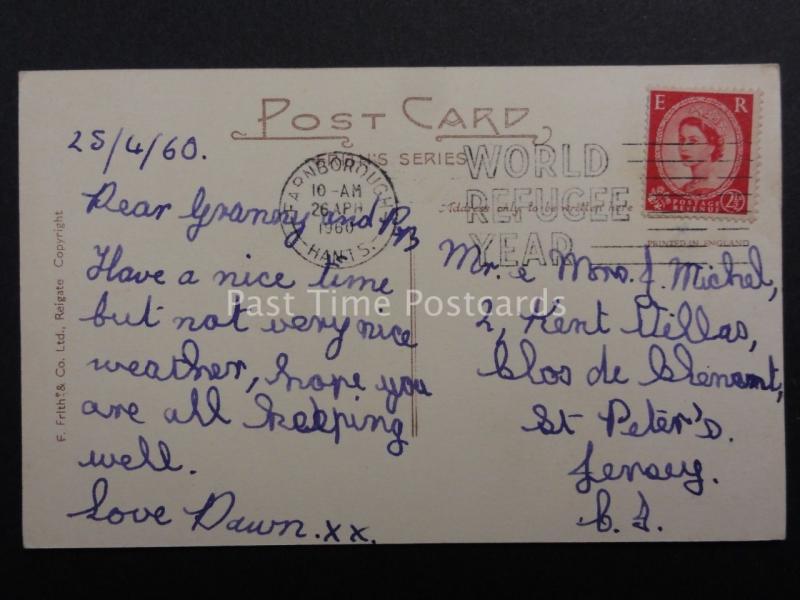 POST CARD
FRITH'S SERIES
25/4/60.
FARNBOROUGH
10-AM
26 APR
1960
HANTS.
WORLD
REFUGEE
YEAR
E R
POSTAGE
REVENUE
2½D
Address only to be written here
PRINTED IN ENGLAND
Dear Granny and
Have a nice time
but not very nice
weather, hope you
are all keeping
well.
Love Dawn.xx.
Mr. & Mrs. J. Michel,
2, Kent Villas,
Clos de
St Peter's.
Jersey.
C.I.
F. Frith & Co. Ltd., Reigate Copyright
Past Time Postcards